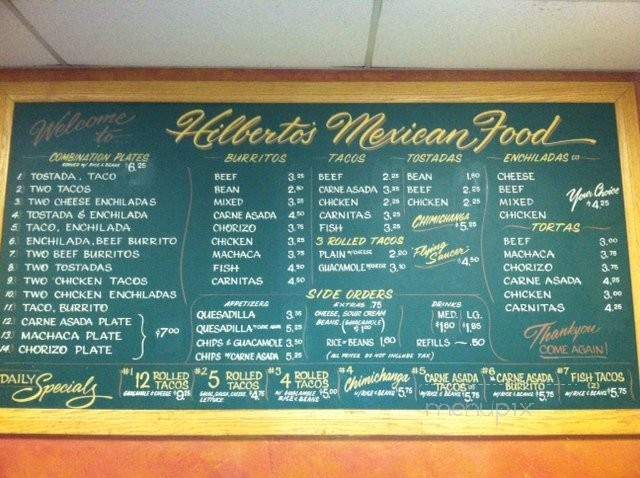 Welcome to
Hilberto's Mexican Food
COMBINATION PLATES
SERVED W/ RICE & BEANS $6.25
1 TOSTADA, TACO
2 TWO TACOS
3 TWO CHEESE ENCHILADAS
4 TOSTADA & ENCHILADA
5 TACO, ENCHILADA
6 ENCHILADA, BEEF BURRITO
7 TWO BEEF BURRITOS
8 TWO TOSTADAS
9 TWO CHICKEN TACOS
10 TWO CHICKEN ENCHILADAS
11 TACO, BURRITO
12 CARNE ASADA PLATE
13 MACHACA PLATE
14 CHORIZO PLATE
$7.00
BURRITOS
BEEF 3.25
BEAN 2.80
MIXED 3.25
CARNE ASADA 4.50
CHORIZO 3.75
CHICKEN 3.25
MACHACA 3.75
FISH 4.50
CARNITAS 4.50
TACOS
BEEF 2.25
CARNE ASADA 3.25
CHICKEN 2.25
CARNITAS 3.25
FISH 3.25
3 ROLLED TACOS
PLAIN W/CHEESE 2.20
GUACAMOLE W/CHEESE 3.10
TOSTADAS
BEAN 1.80
BEEF 2.25
CHICKEN 2.25
CHIMICHANGA $5.25
Flying Saucer $4.50
ENCHILADAS (2)
CHEESE
BEEF
MIXED
CHICKEN
Your Choice $4.25
TORTAS
BEEF 3.00
MACHACA 3.75
CHORIZO 3.75
CARNE ASADA 4.25
CHICKEN 3.00
CARNITAS 4.25
SIDE ORDERS
APPETIZERS
QUESADILLA 3.35
QUESADILLA W/CARNE ASADA 5.25
CHIPS & GUACAMOLE 3.50
CHIPS W/CARNE ASADA 5.25
EXTRAS .75
CHEESE, SOUR CREAM
BEANS, (GUACAMOLE
RICE OR BEANS 1.80
(ALL PRICES DO NOT INCLUDE TAX)
DRINKS
MED. LG.
$1.60 $1.85
REFILLS — .50
Thankyou
COME AGAIN!
DAILY Specials
#1 12 ROLLED TACOS
GUACAMOLE & CHEESE $9.25
#2 5 ROLLED TACOS
GUAC, SALSA, CHEESE, LETTUCE $4.75
#3 4 ROLLED TACOS
W/ GUACAMOLE RICE & BEANS $5.00
#4 Chimichanga
W/RICE & BEANS $5.75
#5 CARNE ASADA TACOS (2)
W/RICE & BEANS $5.75
#6 CARNE ASADA BURRITO
W/RICE & BEANS $5.75
#7 FISH TACOS (2)
W/RICE & BEANS $5.75
menupix